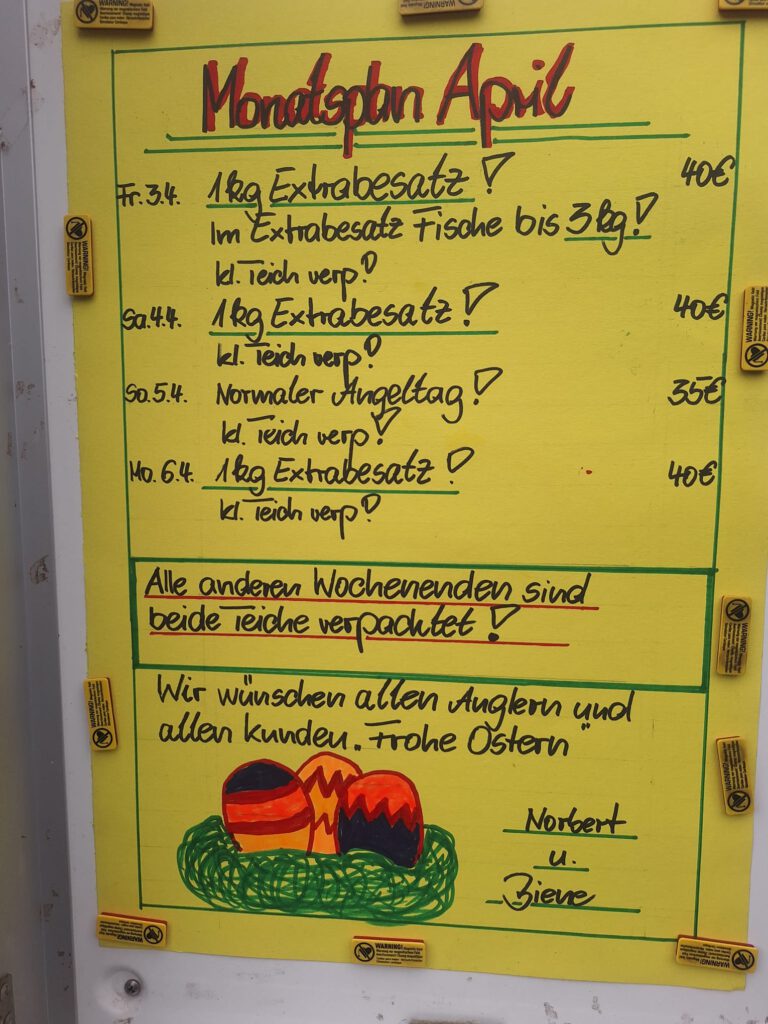 Monatsplan April
Fr. 3.4. 1kg Extrabesatz! 40€
Im Extrabesatz Fische bis 3kg!
kl. Teich verp!
Sa. 4.4. 1kg Extrabesatz! 40€
kl. Teich verp!
So. 5.4. Normaler Angeltag! 35€
kl. Teich verp!
Mo. 6.4. 1kg Extrabesatz! 40€
kl. Teich verp!
Alle anderen Wochenenden sind
beide Teiche verpachtet!
Wir wünschen allen Anglern und
allen Kunden „Frohe Ostern"
Norbert
u.
Biene
WARNING!
WARNING!
WARNING!
WARNING!
WARNING!
WARNING!
WARNING!
WARNING!
WARNING!
WARNING!